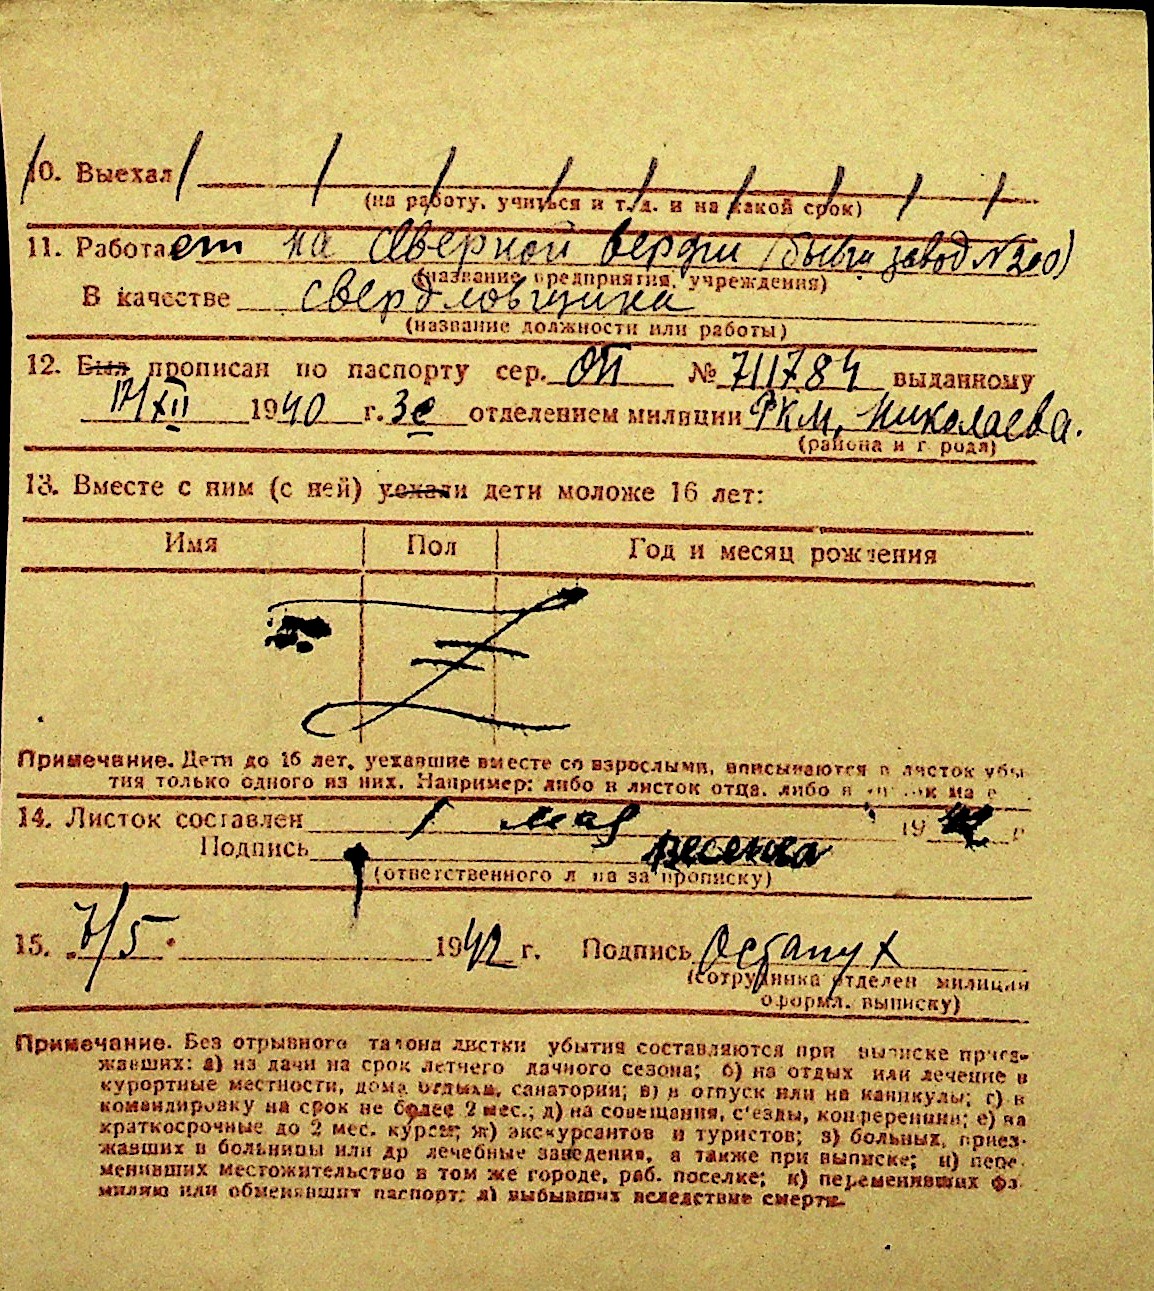 10. Выехал
(на работу, учиться и т. д. и на какой срок)
11. Работает на Северной верфи (бывш завод №200)
(название предприятия, учреждения)
В качестве свердловщика
(название должности или работы)
12. Был прописан по паспорту сер. ОП № 711784 выданному
17/XII 1940 г. 3е отделением милиции РКМ, Николаева.
(района и города)
13. Вместе с ним (с ней) уехали дети моложе 16 лет:
Имя Пол Год и месяц рождения
Примечание. Дети до 16 лет, уехавшие вместе со взрослыми, вписываются в листок убы
тия только одного из них. Например: либо в листок отца, либо в
14. Листок составлен 1 мая 1942 г
Подпись
(ответственного лица за прописку)
15. 7/5 1942 г. Подпись
(сотрудника отделен милиции
оформл. выписку)
Примечание. Без отрывного талона листки убытия составляются при выписке приез-
жавших: а) на дачи на срок летнего дачного сезона; б) на отдых или лечение в
курортные местности, дома отдыха, санатории; в) в отпуск или на каникулы; г) в
командировку на срок не более 2 мес.; д) на совещания, с'езды, конференции; е) на
краткосрочные до 2 мес. курсы; ж) экскурсантов и туристов; з) больных, приез-
жавших в больницы или др лечебные заведения, а также при выписке; и) пере-
менивших местожительство в том же городе, раб. поселке; к) переменивших фа-
милию или обменявшит паспорт; л) выбывших вследствие смерти.